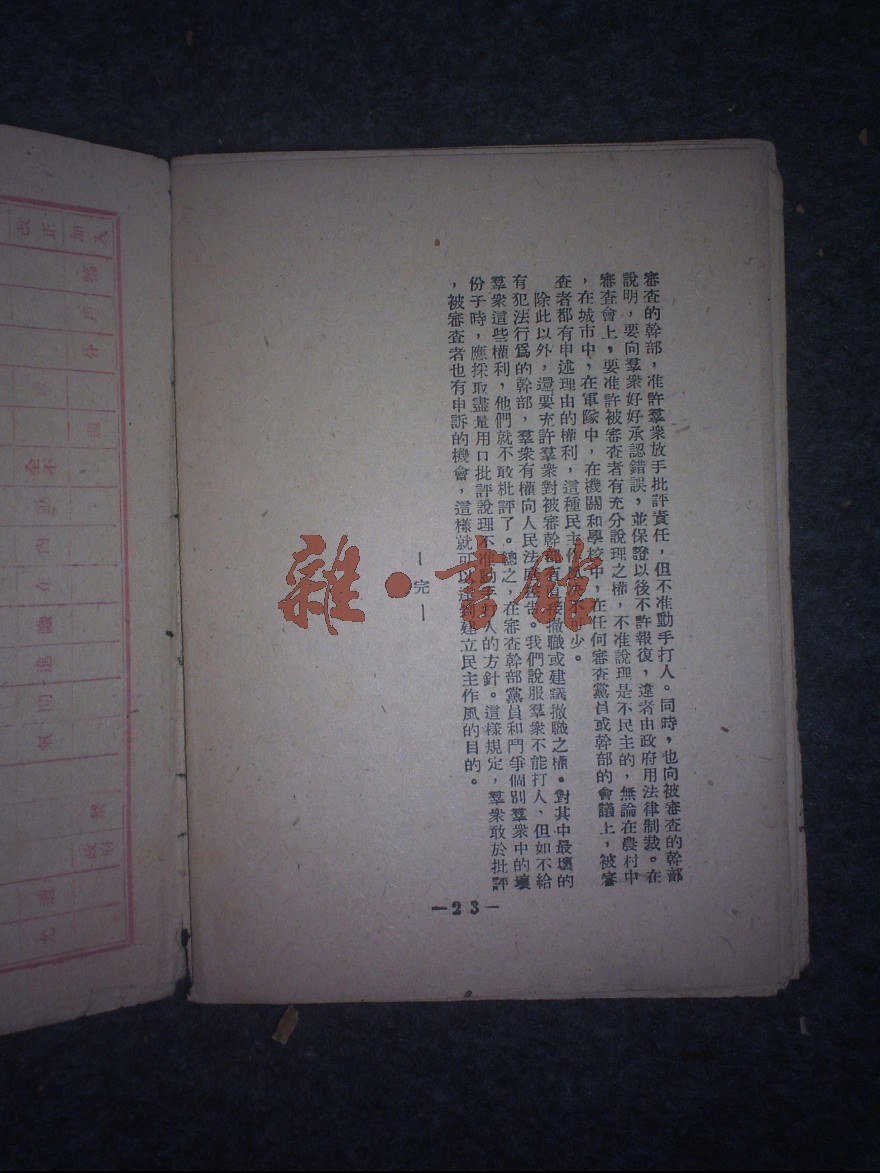 審查的幹部，准許羣衆放手批評責任，但不准動手打人。同時，也向被審查的幹部
說明，要向羣衆好好承認錯誤，並保證以後不許報復，違者由政府用法律制裁。在
審查會上，要准許被審查者有充分說理之權，不准說理是不民主的，無論在農村中
，在城市中，在軍隊中，在機關和學校中，在任何審查黨員或幹部的會議上，被審
查者都有申述理由的權利，這種民主作 少。
除此以外，還要充許羣衆對被審幹部有直接撤職或建議撤職之權。對其中最壞的
有犯法行爲的幹部，羣衆有權向人民法 告。我們說服羣衆不能打人、但如不給
羣衆這些權利，他們就不敢枇評了。總之，在審查幹部黨員和鬥爭個別羣衆中的壞
份子時，應採取盡量用口批評說理不准動 人的方針。這樣規定，羣衆敢於批評
，被審查者也有申訴的機會，這樣就可以達到建立民主作風的目的。
— 完 —
—23—
雜·書館
改正 加入
政府